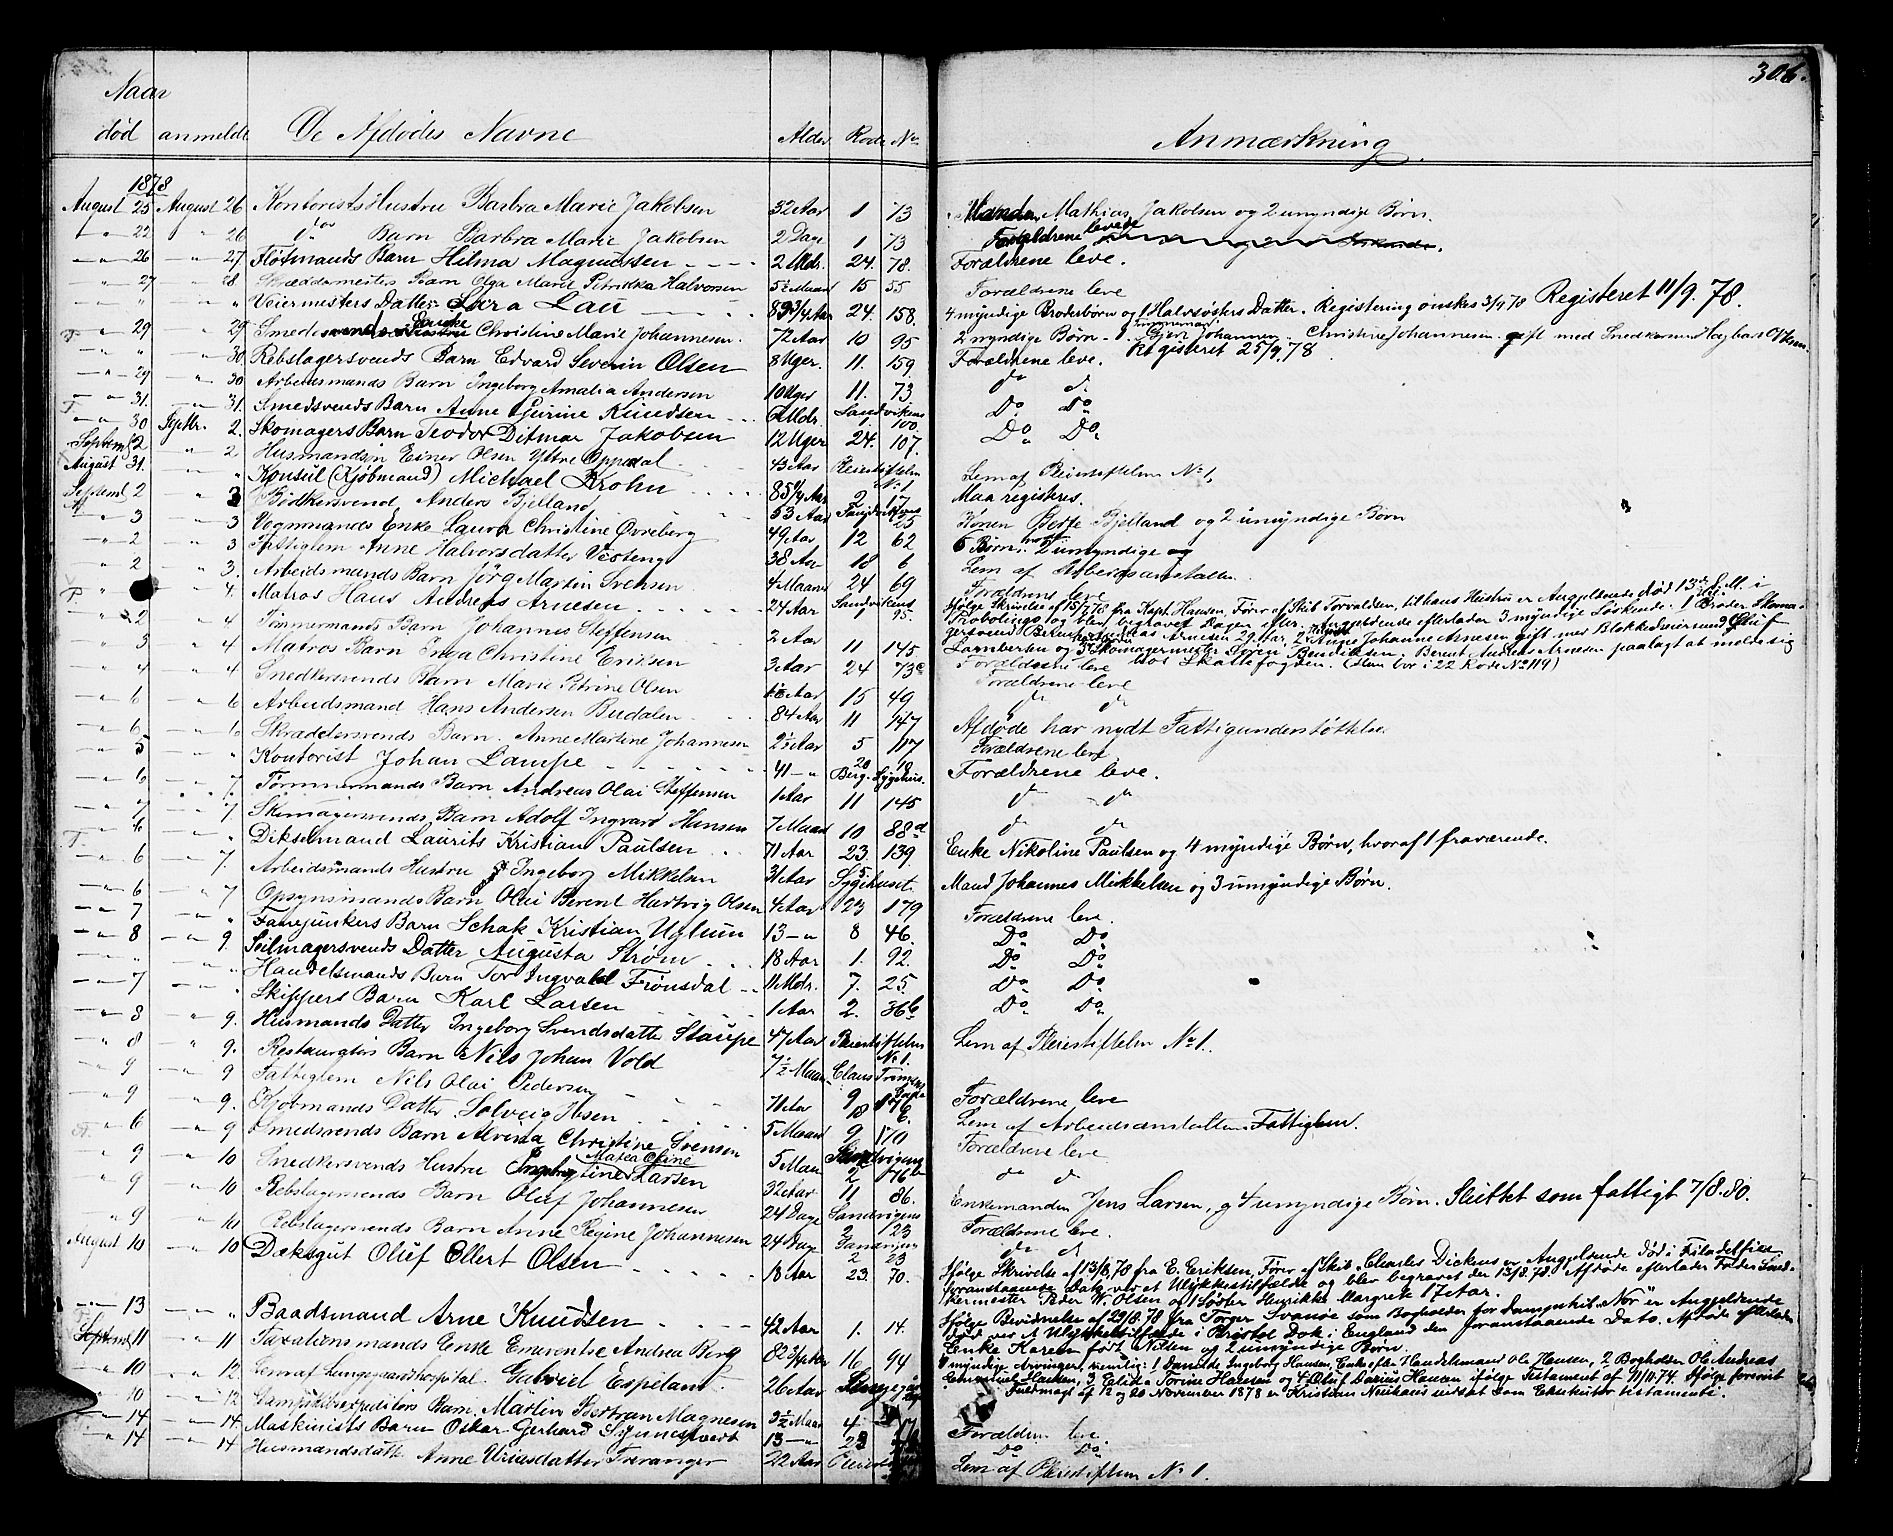 306.
Naar
død anmeldt De Afdødes Navne Alder Rode No Anmærkning.
1878
August 25 August 26 Kontorists Hustru Barbra Marie Jakobsen 32 Aar 1 73 Manden Mathias Jakobsen og 2 umyndige Børn.
" 22 " 26 do Barn Barbra Marie Jakobsen 2 Dage 1 73 Forældrene levede
" 26 " 27 Flødmands Barn Hilma Magnussen 2 Mdr. 24. 78. Forældrene leve.
" 27 " 28 Skræddermesters Barn Olga Marie Petrikka Halvorsen 5½ Maan 15 55 Forældrene leve
" " " " Veiermesters Datter Lara Lau 83¾ Aar 24. 158. 4 myndige Brodersbørn og 1 Halvsøsters Datter. Registering ønskes 3/9 78 Registeret 11/9. 78.
" 29 " 29 Smedesvends Enke Christine Marie Johannesen 72 Aar 10 95 2 myndige Børn Johannesen Christine Johannesen gift med Snedkersvend
" " " 30 Rebslagersvends Barn Edvard Severin Olsen 8 Uger. 11. 159 Forældrene leve. Registeret 25/9. 78
" 29 " 30 Arbeidsmands Barn Ingeborg Amalia Andersen 10 Uger 11. 73 do do
" 31. " 31. Smedsvends Barn Anne Gurine Knudsen Mdr. Sandvikens 1. 100. Do Do
" 30 Septbr. 2. Skomagers Barn Teodor Ditmar Jakobsen 12 Uger 24. 107. Do Do
Septemb 2 " 2 Husmand Einer Olsen Yttre Oppedal 43 Aar Pleiestiftelsen No 1 Lem af Pleiestiftelsen No 1,
August 31. " " Konsul (Kjøbmand) Michael Krohn 85¼ Aar 2 17 Maa registeres.
Septemb 2 " 3 Bødkersvend Anders Bjelland 53 Aar 25 Konen Berte Bjelland og 2 umyndige Børn
" 3 " 3 Vognmands Enke Laura Christine Øvreberg 49 Aar 12 62 5 Børn, hvoraf 2 umyndige
" 2 " 3 Fattiglem Anne Halvorsdatter Vesteng 38 Aar 18 6 Lem af Arbeidsanstalten.
" 2 " 3. Arbeidsmands Barn Jørg Martin Svensen 4 Maan 24 69 Forældrene leve
" " 4. Matros Hans Andreas Arnesen 24 Aar Sandvikens 95. Ifølge Skrivelse af 15/7 78 fra Kapt. Hansen, Fører af Skib Torvaldsen, til hans Hustru er Angjeldende død 13de d. M. i
Probolingo og blev begravet Dagen efter. Angjeldende efterlader 3 myndige Søskende. 1 Broder Skomagersvend Berent Andreas Arnesen 29 Aar, Johanne Arnesen gift med Blokkedreiersvend
Lambertsen og Skomagermester Søren Bendiksen. Berent Andreas Arnesen paalagt at melde sig hos Skattefogden. (Han bor i 22 Rode No 114)
" 2 " 4 Tømmermands Barn Johannes Steffensen 2 Aar 11 145 Forældrene leve
" 3 " 4 Matros Barn Inga Christine Eriksen 3 Aar 24 73c Forældrene leve
" 4 " 4 Snedkersvends Barn Marie Petrine Olsen Aar 15 49 do do
" 6 " 6 Arbeidsmand Hans Andersen Budalen 84 Aar 11 147 Afdøde har nydt Fattigunderstøttelse
" 6 " 6 Skræddersvends Barn. Anne Martine Johannesen 2½ Aar 5 117 Forældrene leve
" 5 " " Kontorist Johan Lampe 41 " 20 10 Berg. Sygehus. Forældrene leve.
" 6 " 7 Tømmermands Barn Andreas Olai Steffensen 1 Aar 11 145 do do
" 7 " 7 Skomagersvends Barn Adolf Ingvard Hansen 7 Maan 10 88d do do
" 6 " " Dikselmand Laurits Kristian Paulsen 71 Aar 23. 139 Enke Nikoline Paulsen og 4 myndige Børn, hvoraf 1 fraværende.
" 6 " 7 Arbeidsmands Hustru Ingeborg Mikkelsen 31 Aar Sygehuset. Mand Johannes Mikkelsen og 3 umyndige Børn.
" 6 " 7 Opsynsmands Barn Olai Berent Hartvig Olsen 4 Aar 23 179 Forældrene leve.
" 7 " " Fanejunkers Barn Schak Kristian Uglum 13 " 8 46. Do Do
" 8 " 9. Seilmagersvends Datter Augusta Strøm 18 Aar 1. 92. Do Do
" " " " Handelsmands Barn Tor Ingvald Frønsdal 11 Mdr. 7. 25. Do Do
" 7 " " Skippers Barn Karl Larsen 1 Aar 2. 36b Do Do
" 8 " 9. Husmands Datter Ingeborg Svendsdatter Staupe 47 Aar Pleiestiftelsen No 1. Lem af Pleiestiftelsen No 1.
" 8 " 9. Restauratørs Barn Nils Johan Vold 7½ Maan Claus Forældrene leve
" 9 " 9 Fattiglem Nils Olai Pedersen 71 Aar 18 6 Lem af Arbeidsanstalten. Fattiglem.
" 9 " 9. Kjøbmands Datter Solveig Ibsen 5 Maan 9 170 Forældrene leve
" 6 " 9 Smedsvends Barn Alvida Christine Svensen 5 Maan 2 176b do do
" 9 " 10 Snedkersvends Hustru Maren Oline Larsen 32 Aar 11 86. Enkemanden Jens Larsen, og 4 umyndige Børn. Sluttet som fattigt 7/8. 80.
" 9 " 10 Rebslagersvends Barn Oluf Johannesen 24 Dage Sandvigens 2 23 Forældrene leve.
" 9 " 10 Rebslagersvends Barn Anne Regine Johannesen 24 Dage Sandvigens 2 23 do do
August 10 " 10 Dæksgut Oluf Ellert Olsen 18 Aar 23. 70. Ifølge Skrivelse af 13/8 78 fra E. Eriksen, Fører af Skib "Charles Dickens" er Angjeldende død i Filadelfia
foranstaaende Dato ved et Ulykkestilfælde og blev begravet den 13/8. 78. Afdøde efterlader Fader Snedkermester Peder W. Olsen og 1 Søster Henrikke Margrete 17 Aar.
" 13 " " Baadsmand Arne Knudsen 42 Aar 1. 14. Ifølge Bevidnelse af 29/8. 78 fra Torger Svanøe som Bogholder for Dampskib "Nor" er Angjeldende
død ved et Ulykkestilfælde i Bristol Dok i England den foranstaaende Dato. Afdøde efterlader
Enke Karen født Nilsen og 2 umyndige Børn.
Septemb 11 " 11 Taxationsmands Enke Emerentse Andrea Berg 82 16 94 myndige Arvinger, nemlig: 1 Ingeborg Hansen, Enke efter Handelsmand Ole Hansen, 2 Bogholder Ole Andreas
Emanuel Hansen, 3 Elida Torine Hansen og 4 Oluf Darius Hansen ifølge Testament af 11/10. 74. Ifølge forevist
Fuldmagt af 12 og 20 November 1878 er Kristian Neuhaus indsat som Eksekutor testamenti.
" 10 " 12 Lem af Lungegaardshospital. Gabriel Espeland 26 Aar
" 10 " 12 Barn Martin Bertran Magnesen 3½ Maan 4 Forældrene leve.
" 14 " 14 Maskinists Barn Oskar Gerhard Synnestvedt 13 " 23 Do Do
" 14 " 14 Husmandsdatter Anne Uriusdatter Treranger 22 Aar Lem af Pleiestiftelsen No 1.